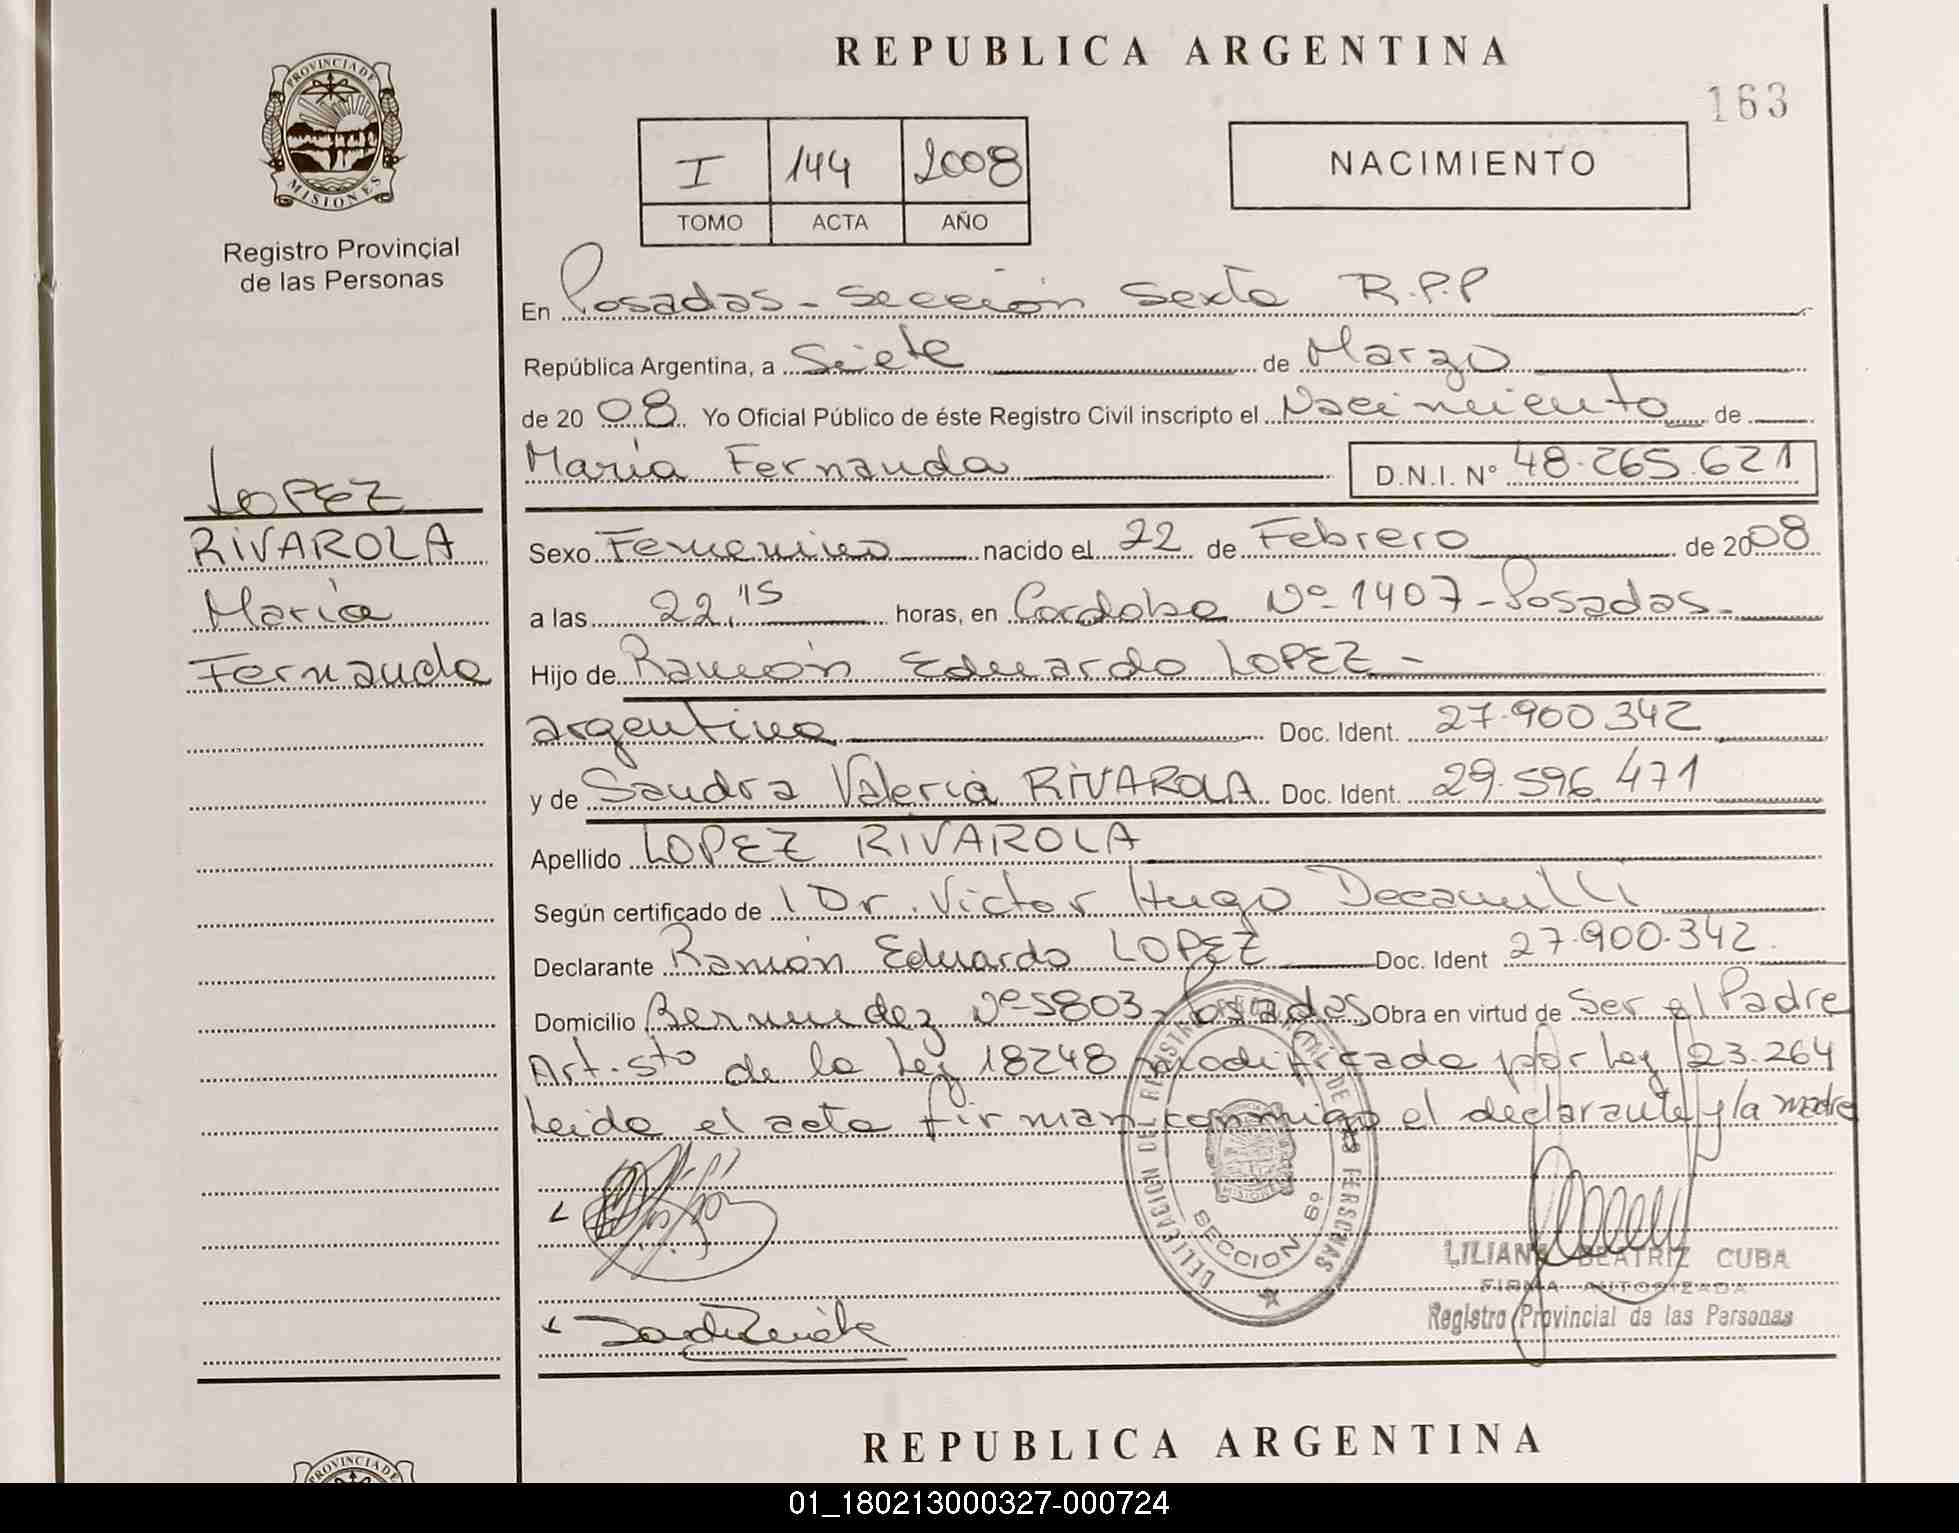 REPUBLICA ARGENTINA
163
PROVINCIA DE
MISIONES
Registro Provincial
de las Personas
I 144 2008
TOMO ACTA AÑO
NACIMIENTO
En Posadas - Sección Sexta R.P.P
República Argentina, a Siete de Marzo
de 2008 Yo Oficial Público de éste Registro Civil inscripto el Nacimiento de
María Fernanda D.N.I. N° 48.265.621
LOPEZ
RIVAROLA
María
Fernanda
Sexo Femenino nacido el 22 de Febrero de 2008
a las 22,15 horas, en Cordoba Nº 1407 - Posadas -
Hijo de Ramón Eduardo LOPEZ -
argentino Doc. Ident. 27.900.342
y de Sandra Valeria RIVAROLA Doc. Ident. 29.596.471
Apellido LOPEZ RIVAROLA
Según certificado de l Dr. Victor Hugo
Declarante Ramón Eduardo LOPEZ Doc. Ident 27.900.342.
Domicilio Bermudez Nº 5803 - Posadas Obra en virtud de Ser el Padre
Art. 5to de la Ley 18248 modificada por Ley 23.264
Leida el acta firman conmigo el declarante y la madre
DELEGACION DEL REGISTRO PROVINCIAL DE LAS PERSONAS
SECCION 6º
MISIONES
LILIANA BEATRIZ CUBA
FIRMA AUTORIZADA
Registro Provincial de las Personas
REPUBLICA ARGENTINA
PROVINCIA DE
01_180213000327-000724